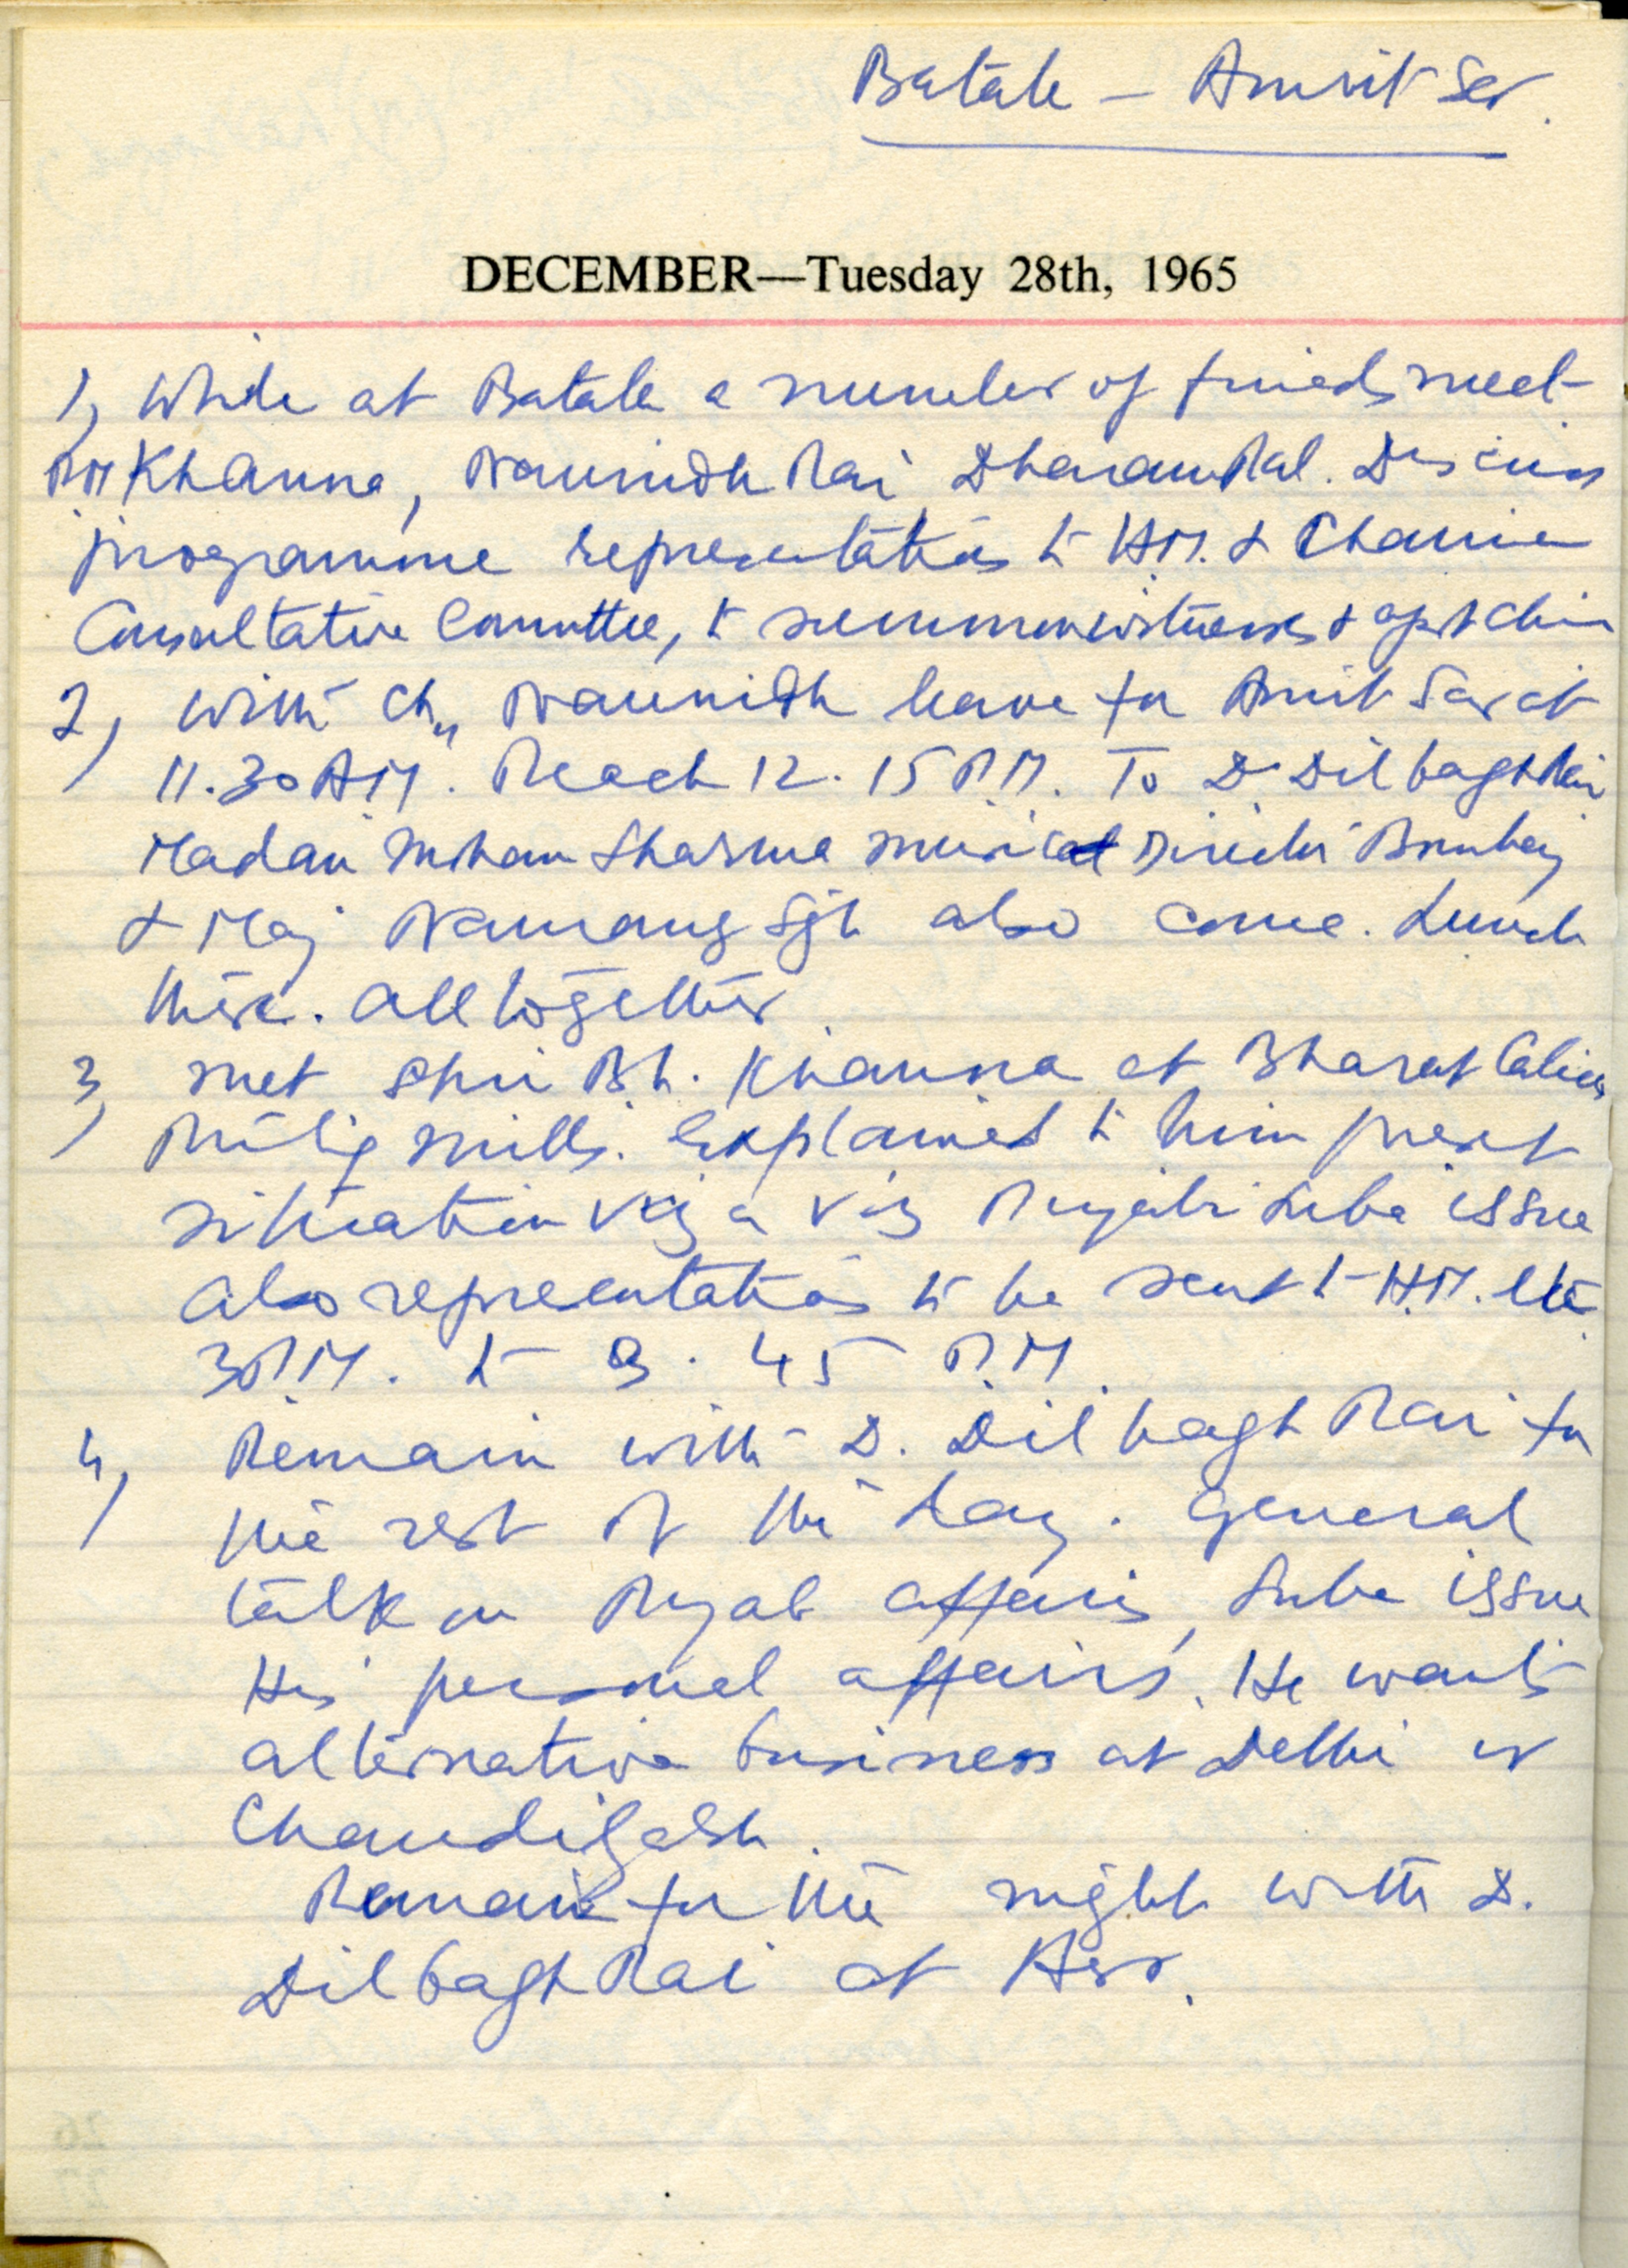 Batala - Amritsar.
DECEMBER—Tuesday 28th, 1965
1, While at Batala a number of friends meet
Khanna, Naunidh Rai Dharam Pal. Discuss
programme representations to H.M. &
Consultative Committee, to summon witnesses &
2, With Ch,, Naunidh leave for Amritsar at
11.30 AM. Reach 12.15 P.M. To D. Dilbagh Rai
Madan Mohan Sharma music Director Bombay
& Maj Sgh also come. Lunch
there. All together
3, met Shri Khanna at Bharat Calico
Mills. Explained to him present
situation viz a viz Punjabi Suba issue
also representations to be sent to H.M. etc
3 P.M. to 3.45 P.M.
4, Remain with D. Dilbagh Rai for
the rest of the day. General
talk on Punjab affairs, Suba issue
His personal affairs. He wants
alternative business at Delhi or
Chandigarh.
Remain for the night with D.
Dilbagh Rai at Asr.